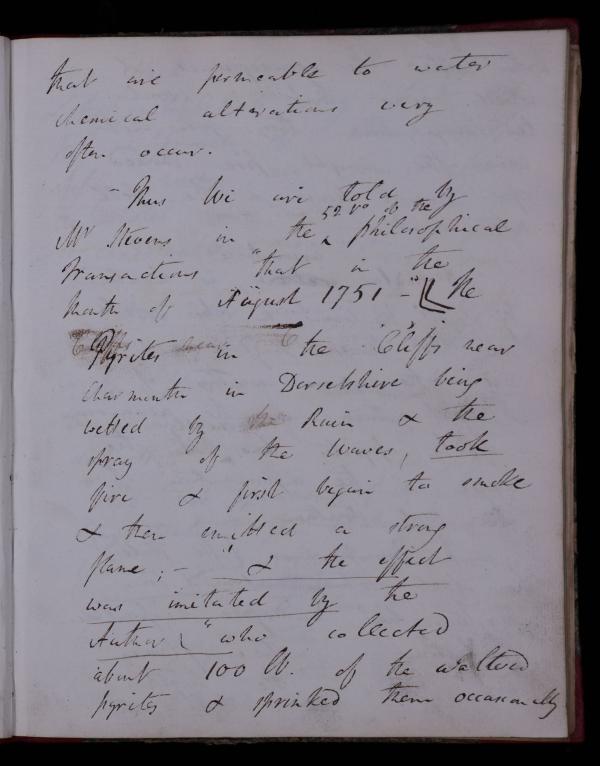 that are permeable to water
chemical alterations very
often occur.
- Thus We are told by
Mr Stevens in the 52 vo of the Philosophical
Transactions "that in the
Month of August 1751 - " The
Pyrites in the Cliffs near
Charmouth in Dorsetshire being
wetted by the Rain & the
spray of the waves, took
fire & first began to smoke
& then emitted a strong
flame; - " & the effect
was imitated by the
Author "who collected
about 100 lb. of the
pyrites & sprinked them occasionally